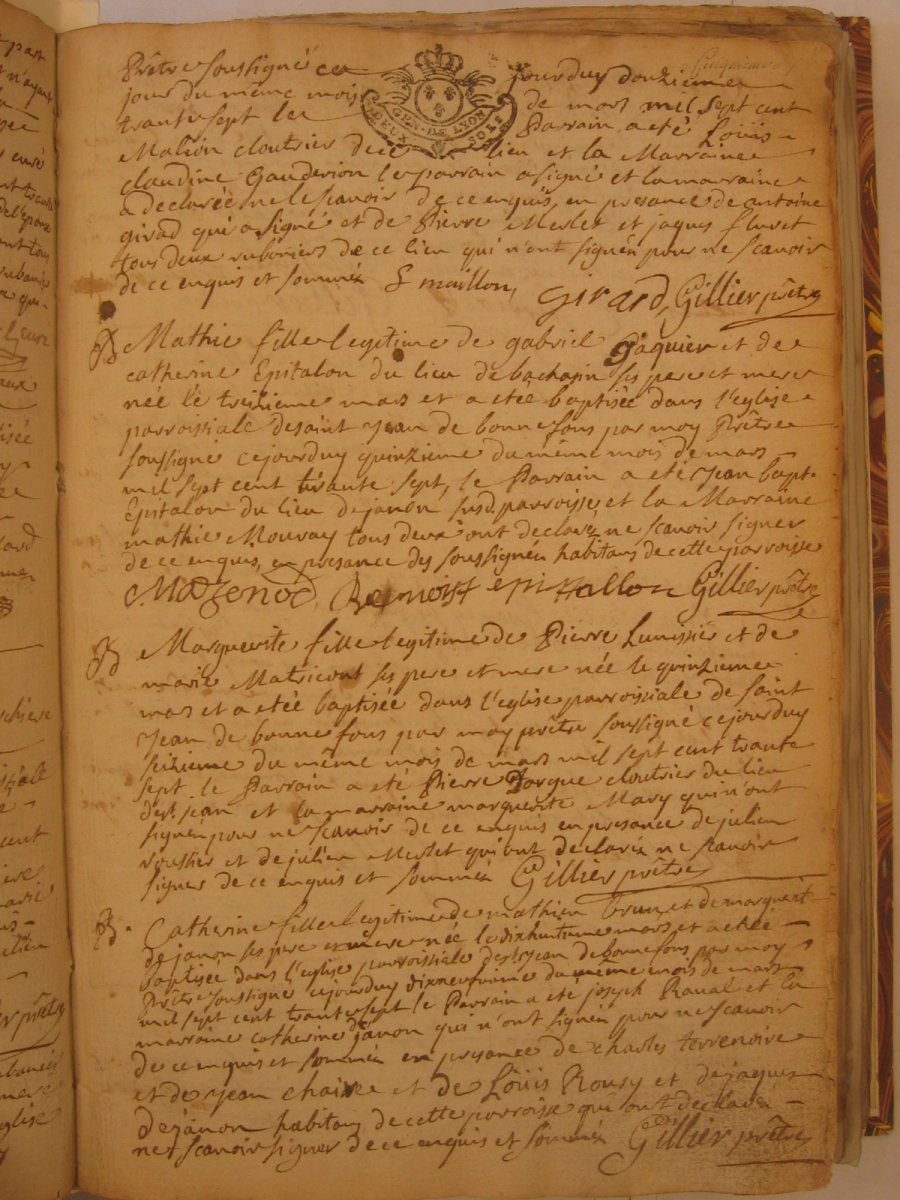 Prêtre soussigné ce jourduy douzieme
jour du même mois de mars mil sept cent
trante sept le Parrain a eté Loüis
GEN. DE LYON
DEUX SOLS
Malion cloutrier de ce lieu et la Marraine
claudine Gauderion le parrain a signé et la marraine
a declarée ne le scavoir de ce enquis, en presance de antoine
girad qui a signé et de Pierre Merlet et jaques fluret
tous deux rubaniers de ce lieu qui n'ont signén pour ne scavoir
de ce enquis et sommén L maillon, Girard, Gillier prêtre
B Mathie fille legitime de gabriel Jaquier et de
catherine Epitalon du lieu de bachapin ses pere et mere
née le treizieme mars et a eteé baptisée dans l'eglise
parroissiale de saint Jean de bonnefons par moy Prêtre
soussigné cejourduy quinzieme du même mois de mars
mil sept cent trante sept, le Parrain a eté Jean bapt.
Epitalon du lieu de janon susd. parroisse, et la Marraine
mathie Mouray tous deux ont declarén ne scavoir signer
de ce enquis, en presance des soussignén habitans de cette parroisse
Mazenod, Benoist epitallon Gillier prêtre
B Marguerite fille legitime de Pierre Limissiés et de
marie Matricout ses pere et mere née le quinzieme
mars et a eteé baptisée dans l'eglise parroissiale de saint
Jean de bonnefons par moy prêtre soussigné cejourduy
seizieme du même mois de mars mil sept cent trante
sept le Parrain a eté Pierre Jorque cloutrier du lieu
de st. jean et la marraine marguerite Mary qui n'ont
signén pour ne scavoir de ce enquis en presance de julien
roussier et de julien Merlet qui ont declarén ne scavoir
signer de ce enquis et sommén Gillier prêtre
B. Catherine fille legitime de mathieu brun et de marguerit
de janon ses pere et mere née le dixhuitieme mars et a eteé
baptisée dans l'eglise parroissiale de st. jean de bonnefons par moy
Prêtre soussigné cejourduy dixneuvieme du même mois de mars
mil sept cent trante sept le Parrain a eté joseph Raval et la
marraine catherine de janon qui n'ont signén pour ne scavoir
de ce enquis et sommén en presance de charles terrenoire
et de jean chaize et de Loüis Rousy et de jaques
de janon habitans de cette parroisse qui ont declarén
ne scavoir signer de ce enquis et sommén Gillier prêtre